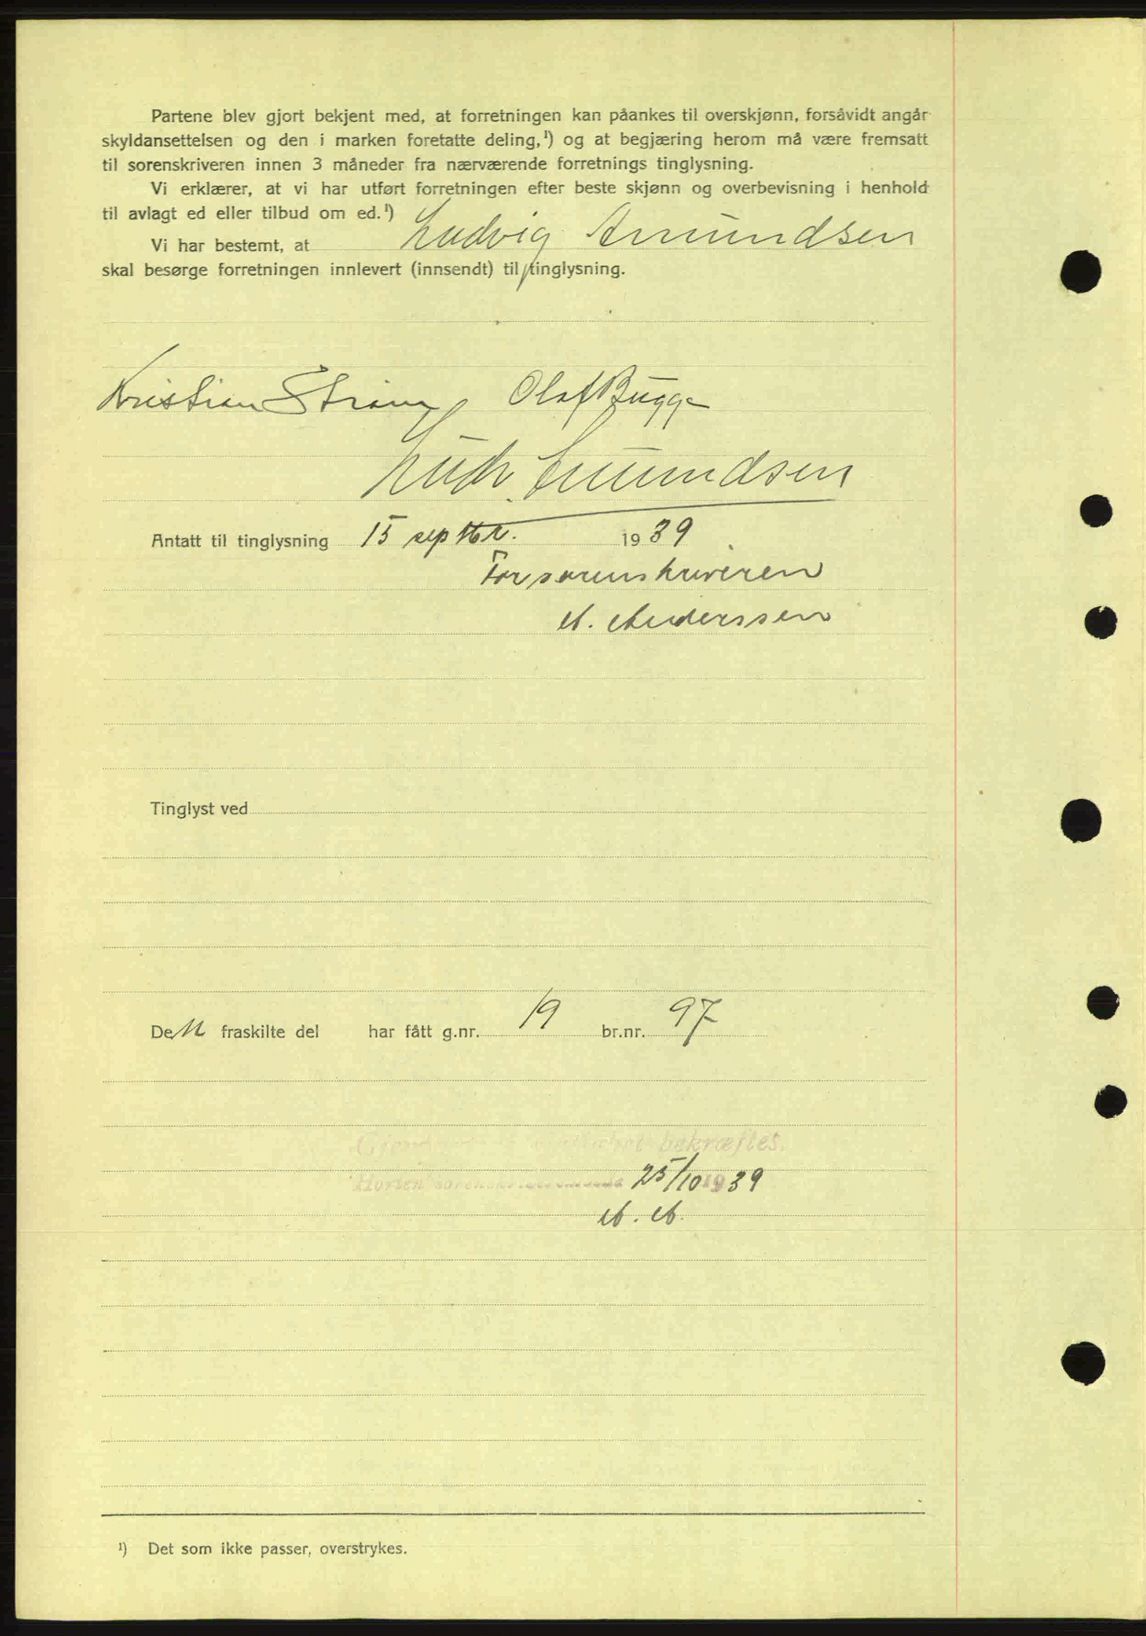 Partene blev gjort bekjent med, at forretningen kan påankes til overskjønn, forsåvidt angår
skyldansettelsen og den i marken foretatte deling,¹) og at begjæring herom må være fremsatt
til sorenskriveren innen 3 måneder fra nærværende forretnings tinglysning.
Vi erklærer, at vi har utført forretningen efter beste skjønn og overbevisning i henhold
til avlagt ed eller tilbud om ed.¹)
Vi har bestemt, at Ludvig Amundsen
skal besørge forretningen innlevert (innsendt) til tinglysning.
Kristian Strøm Olaf Bugge
Ludv. Amundsen
Antatt til tinglysning 15 septbr. 1939
For sorenskriveren
A. Anderssen
Tinglyst ved
Den fraskilte del har fått g.nr. 19 br.nr. 97
bekræftes.
Horten sorenskriverembede 25/10 1939
A. A.
¹) Det som ikke passer, overstrykes.